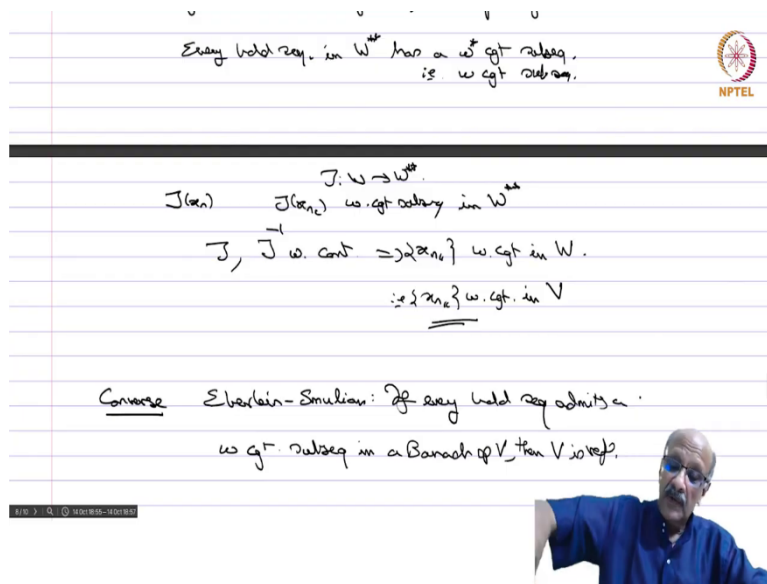 Every bdd seq. in W** has a w* cgt subseq.
i.e. w cgt subseq.
NPTEL
J: W → W**.
J(xₙ) J(xₙₖ) w. cgt subseq in W**
J, J⁻¹ w. cont. ⇒ {xₙₖ} w. cgt in W.
i.e {xₙₖ} w. cgt. in V
Converse Eberlein-Smulian: If every bdd seq admits a
w cgt. subseq in a Banach sp V, then V is ref.
8/10 14 Oct 18:55 – 14 Oct 18:57